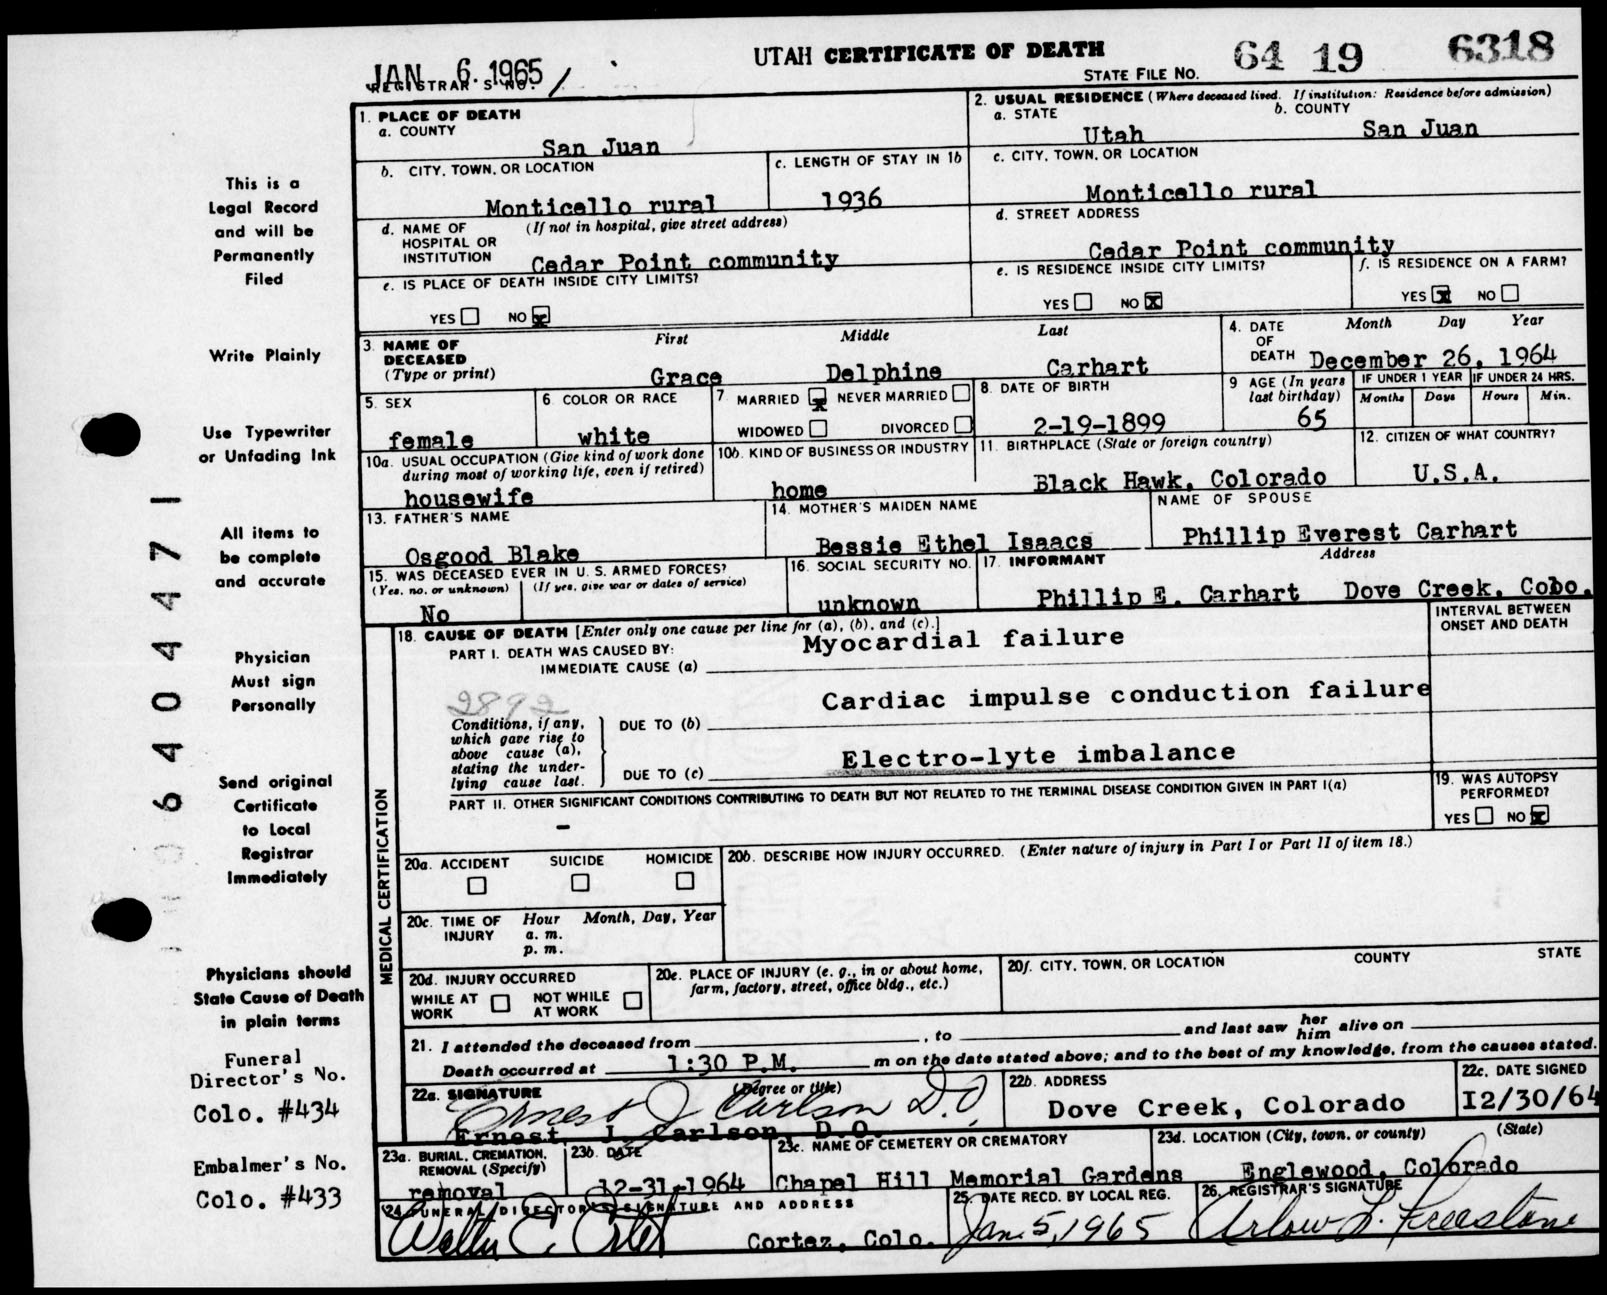 UTAH CERTIFICATE OF DEATH
JAN 6. 1965
REGISTRAR'S NO. 1
STATE FILE NO. 64 19 6318
1. PLACE OF DEATH
a. COUNTY
San Juan
2. USUAL RESIDENCE (Where deceased lived. If institution: Residence before admission)
a. STATE
b. COUNTY
Utah
San Juan
b. CITY, TOWN, OR LOCATION
Monticello rural
c. LENGTH OF STAY IN 1b
1936
c. CITY, TOWN, OR LOCATION
Monticello rural
d. NAME OF HOSPITAL OR INSTITUTION
(If not in hospital, give street address)
Cedar Point community
d. STREET ADDRESS
Cedar Point community
e. IS PLACE OF DEATH INSIDE CITY LIMITS?
YES NO x
e. IS RESIDENCE INSIDE CITY LIMITS?
YES NO x
f. IS RESIDENCE ON A FARM?
YES x NO
3. NAME OF DECEASED (Type or print)
First Middle Last
Grace Delphine Carhart
4. DATE OF DEATH
Month Day Year
December 26, 1964
5. SEX
female
6. COLOR OR RACE
white
7. MARRIED x NEVER MARRIED
WIDOWED DIVORCED
8. DATE OF BIRTH
2-19-1899
9 AGE (In years last birthday)
65
IF UNDER 1 YEAR
Months Days
IF UNDER 24 HRS.
Hours Min.
10a. USUAL OCCUPATION (Give kind of work done during most of working life, even if retired)
housewife
10b. KIND OF BUSINESS OR INDUSTRY
home
11. BIRTHPLACE (State or foreign country)
Black Hawk, Colorado
12. CITIZEN OF WHAT COUNTRY?
U.S.A.
13. FATHER'S NAME
Osgood Blake
14. MOTHER'S MAIDEN NAME
Bessie Ethel Isaacs
NAME OF SPOUSE
Phillip Everest Carhart
15. WAS DECEASED EVER IN U. S. ARMED FORCES?
(Yes, no, or unknown) (If yes, give war or dates of service)
No
16. SOCIAL SECURITY NO.
unknown
17. INFORMANT
Address
Phillip E. Carhart Dove Creek, Cobo.
MEDICAL CERTIFICATION
18. CAUSE OF DEATH [Enter only one cause per line for (a), (b), and (c).]
PART I. DEATH WAS CAUSED BY:
IMMEDIATE CAUSE (a)
Myocardial failure
INTERVAL BETWEEN ONSET AND DEATH
2892
Conditions, if any, which gave rise to above cause (a), stating the underlying cause last.
DUE TO (b)
Cardiac impulse conduction failure
DUE TO (c)
Electro-lyte imbalance
PART II. OTHER SIGNIFICANT CONDITIONS CONTRIBUTING TO DEATH BUT NOT RELATED TO THE TERMINAL DISEASE CONDITION GIVEN IN PART I(a)
-
19. WAS AUTOPSY PERFORMED?
YES NO x
20a. ACCIDENT SUICIDE HOMICIDE
20b. DESCRIBE HOW INJURY OCCURRED. (Enter nature of injury in Part I or Part II of item 18.)
20c. TIME OF INJURY
Hour Month, Day, Year
a. m.
p. m.
20d. INJURY OCCURRED
WHILE AT WORK NOT WHILE AT WORK
20e. PLACE OF INJURY (e. g., in or about home, farm, factory, street, office bldg., etc.)
20f. CITY, TOWN, OR LOCATION COUNTY STATE
21. I attended the deceased from , to and last saw her him alive on
Death occurred at 1:30 P.M. m on the date stated above; and to the best of my knowledge, from the causes stated.
22a. SIGNATURE (Degree or title)
Ernest J Carlson D.O.
Ernest J. Carlson, D.O.
22b. ADDRESS
Dove Creek, Colorado
22c. DATE SIGNED
12/30/64
23a. BURIAL, CREMATION, REMOVAL (Specify)
removal
23b. DATE
12-31-1964
23c. NAME OF CEMETERY OR CREMATORY
Chapel Hill Memorial Gardens
23d. LOCATION (City, town, or county) (State)
Englewood, Colorado
24 FUNERAL DIRECTOR'S SIGNATURE AND ADDRESS
Cortez, Colo.
25. DATE RECD. BY LOCAL REG.
Jan. 5, 1965
26. REGISTRAR'S SIGNATURE
Arlow L. Freestone
This is a
Legal Record
and will be
Permanently
Filed
Write Plainly
Use Typewriter
or Unfading Ink
All items to
be complete
and accurate
Physician
Must sign
Personally
Send original
Certificate
to Local
Registrar
Immediately
Physicians should
State Cause of Death
in plain terms
Funeral
Director's No.
Colo. #434
Embalmer's No.
Colo. #433
6404471